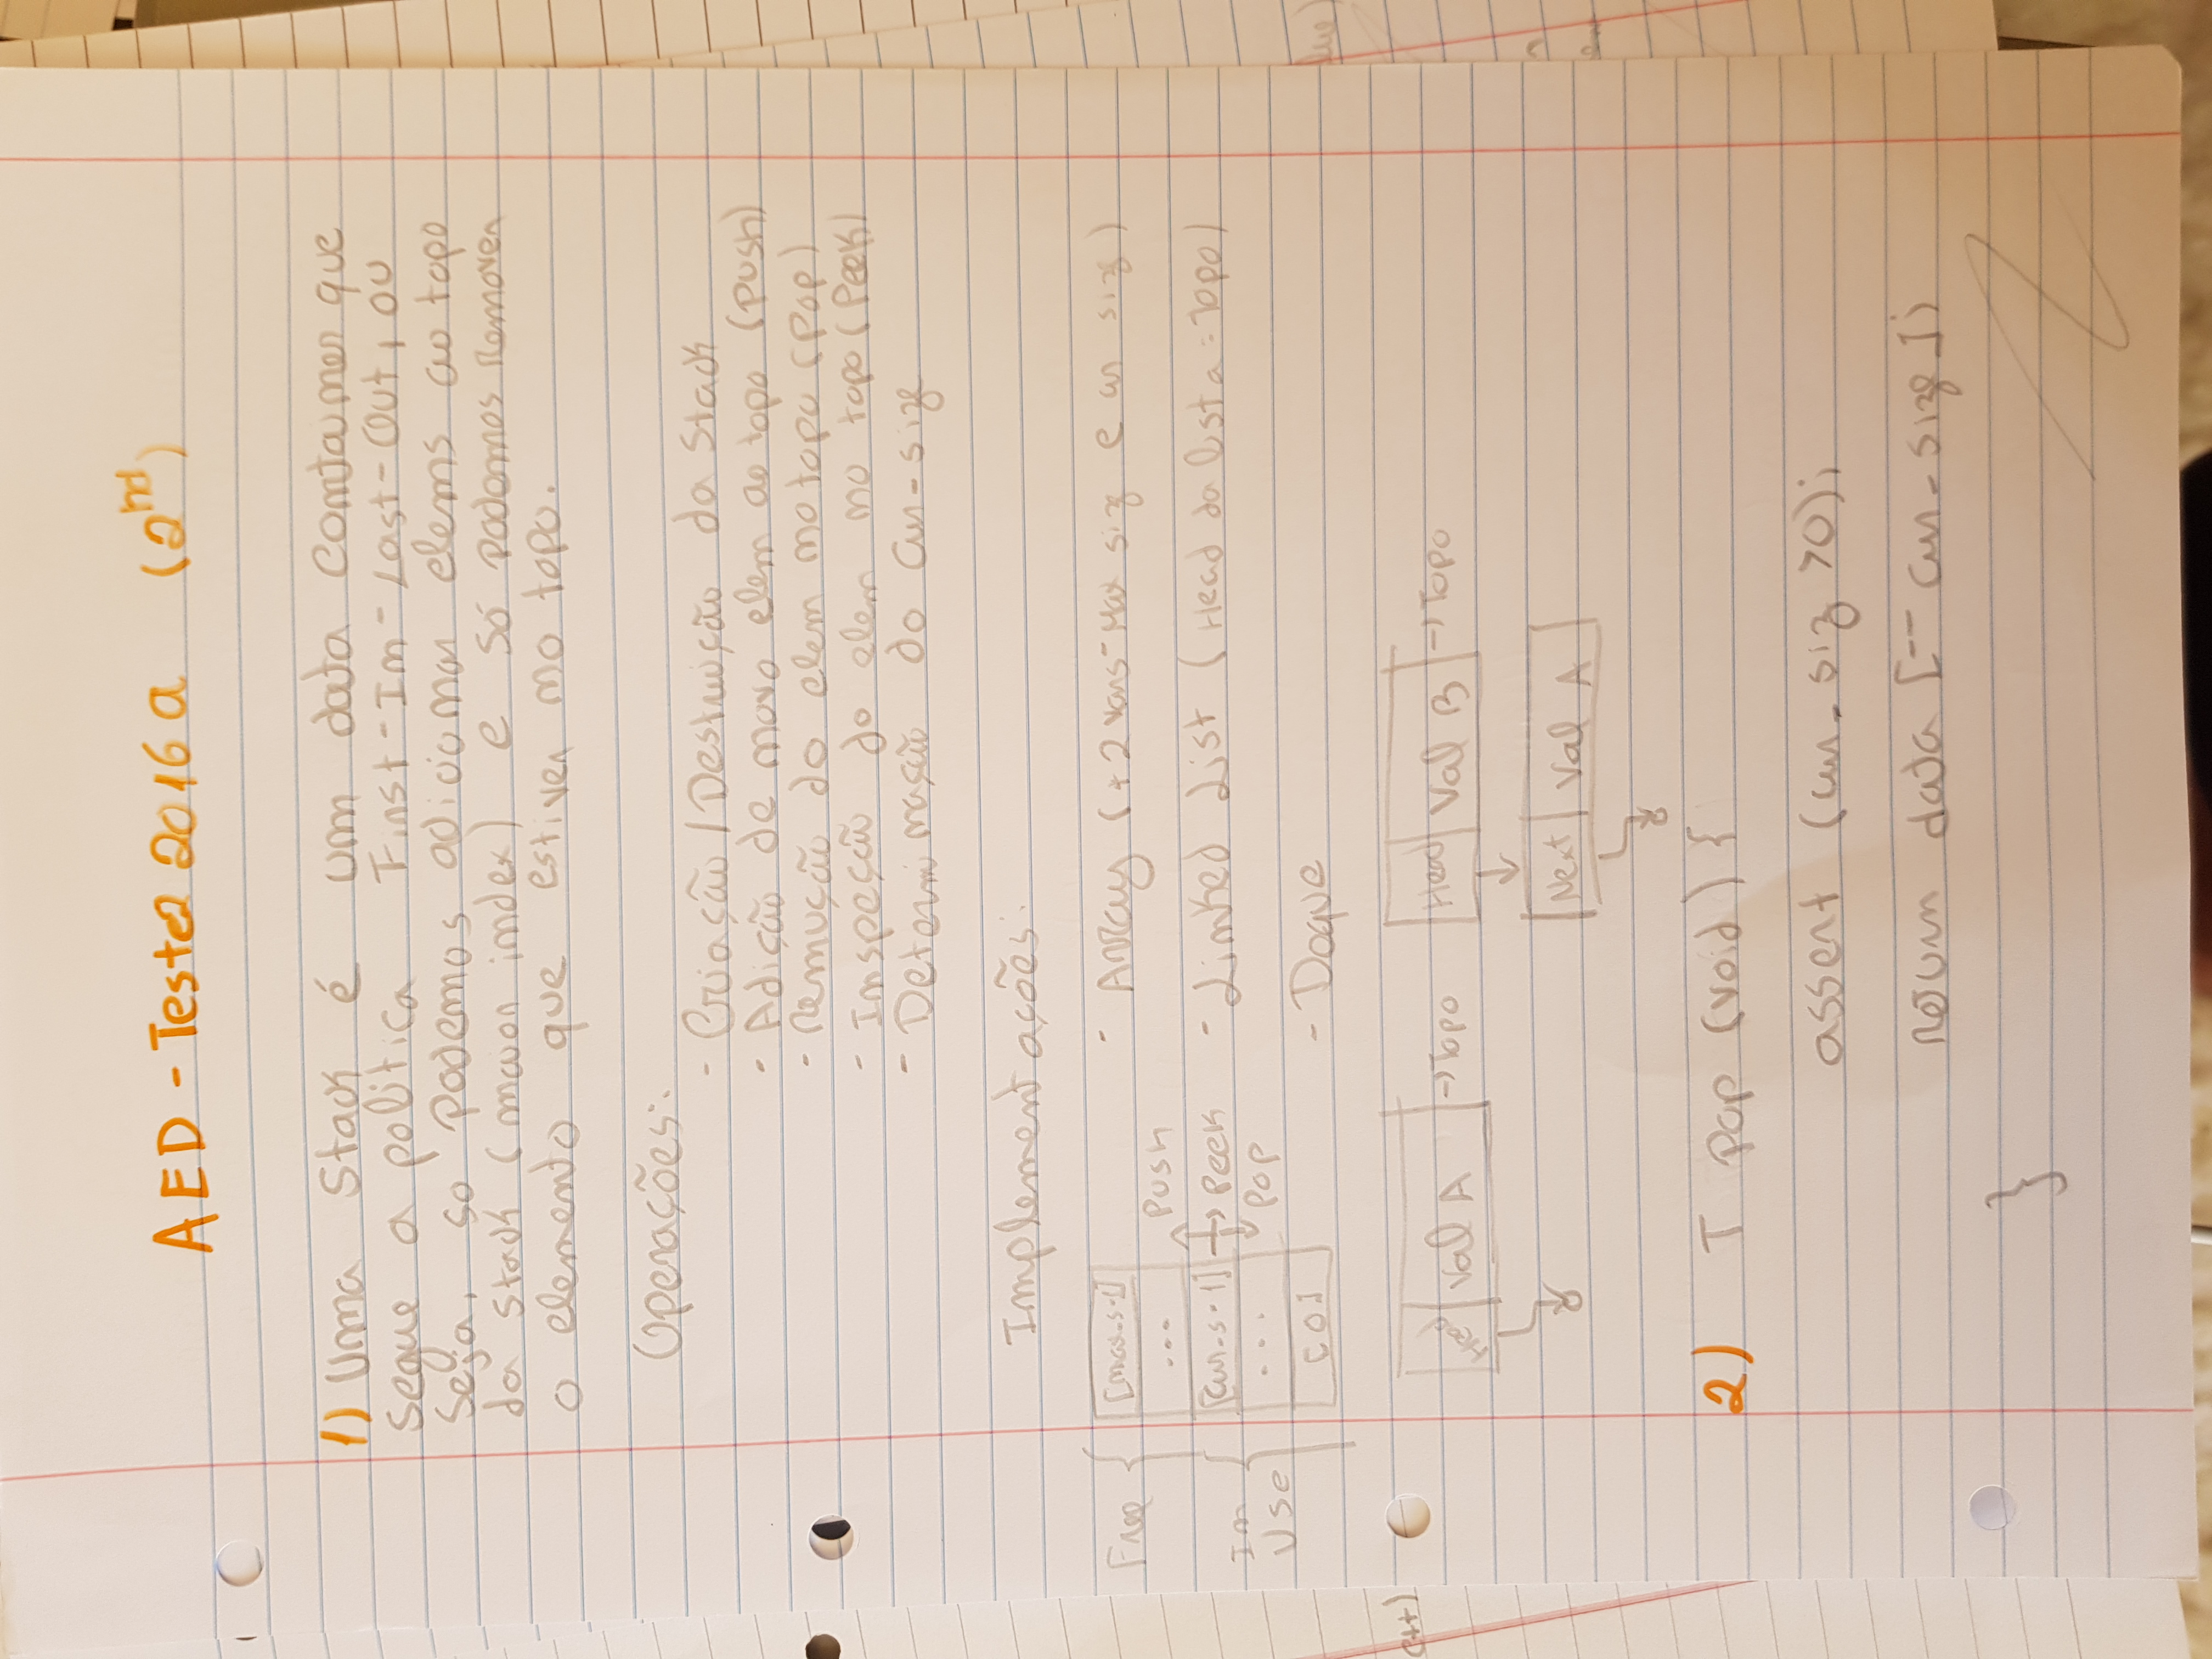 AED - Teste2 2016 a (2nd)
1) Uma Stack é um data Container que
segue a politica First-In-Last-Out, ou
seja, so podemos adicionar elems ao topo
da stack (maior index) e só podemos remover
o elemento que estiver no topo.
Operações:
- Criação / Destruição da Stack
- Adição de novo elem ao topo (push)
- Remoção do elem no topo (Pop)
- Inspeção do elem no topo (Peek)
- Determinação do cur-size
Implementações:
Free
[max-s-1]
- Array (+ 2 vars - Max siz e cur siz)
...
Push
In
Use
[cur-s-1]
Peek
- Linked List (Head da lista = Topo)
...
Pop
[0]
- Deque
Head
Val A
→ Topo
Head
Val B
→ Topo
Next
Val A
2) T pop (void) {
assert (cur_siz > 0);
return data [-- cur_size];
}